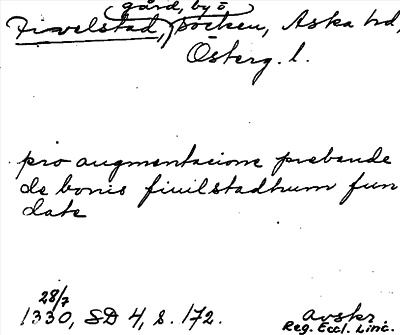 gård, by ö,
Fivelstad, socken, Aska hd,
Österg. l.
pro augmentacione prebende
de bonis fiuilstadhum fun
date
28/7
1330, SD 4, s. 172.
avskr.
Reg. Eccl. Linc.